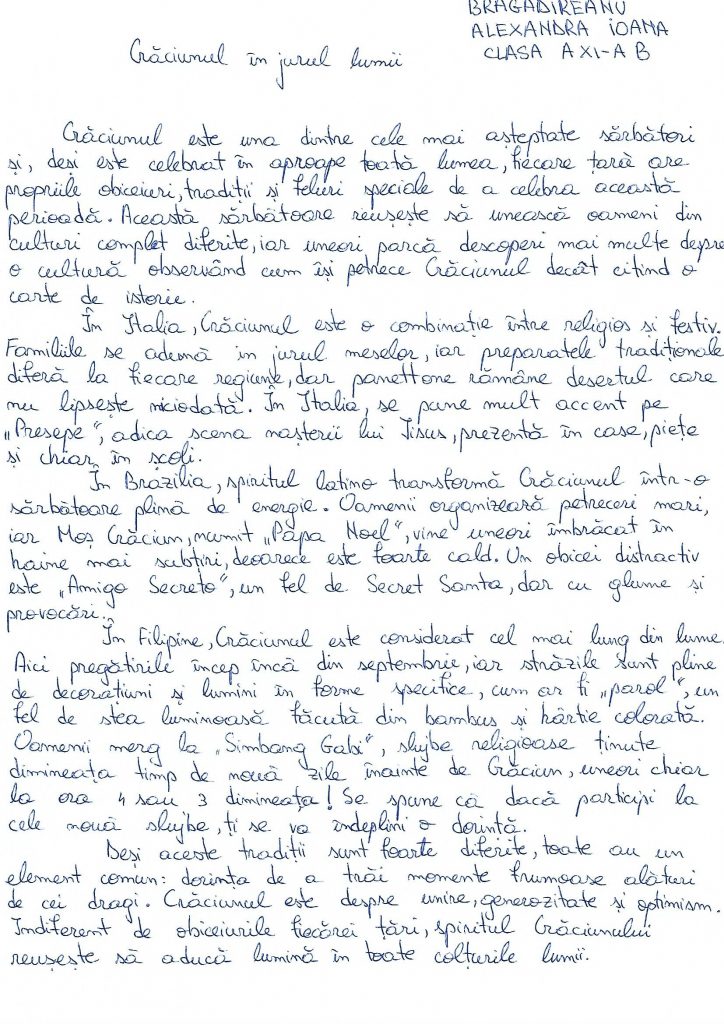 BRAGADIREANU
ALEXANDRA IOANA
CLASA A XI-A B
Crăciunul în jurul lumii
Crăciunul este una dintre cele mai așteptate sărbători
și, deși este celebrat în aproape toată lumea, fiecare țară are
propriile obiceiuri, tradiții și feluri speciale de a celebra această
perioadă. Această sărbătoare reușește să unească oameni din
culturi complet diferite, iar uneori parcă descoperi mai multe depre
o cultură observând cum își petrece Crăciunul decât citind o
carte de istorie.
În Italia, Crăciunul este o combinație între religios si festiv.
Familiile se adună in jurul meselor, iar preparatele tradiționale
diferă la fiecare regiune, dar panettone rămâne desertul care
nu lipsește niciodată. În Italia, se pune mult accent pe
„Presepe”, adica scena nașterii lui Iisus, prezentă în case, piețe
și chiar în școli.
În Brazilia, spiritul latino transformă Crăciunul într-o
sărbătoare plină de energie. Oamenii organizează petreceri mari,
iar Moș Crăciun, numit „Papa Noel”, vine uneori îmbrăcat în
haine mai subțiri, deoarece este foarte cald. Un obicei distractiv
este „Amigo Secreto”, un fel de Secret Santa, dar cu glume și
provocări.
În Filipine, Crăciunul este considerat cel mai lung din lume.
Aici pregătirile încep încă din septembrie, iar străzile sunt pline
de decorațiuni și lumini în forme specifice, cum ar fi „parol”, un
fel de stea luminoasă făcută din bambus și hârtie colorată.
Oamenii merg la „Simbang Gabi”, slujbe religioase ținute
dimineața timp de nouă zile înainte de Crăciun, uneori chiar
la ora 4 sau 3 dimineața! Se spune că dacă participi la
cele nouă slujbe, ți se va îndeplini o dorință.
Deși aceste tradiții sunt foarte diferite, toate au un
element comun: dorința de a trăi momente frumoase alături
de cei dragi. Crăciunul este despre unire, generozitate și optimism.
Indiferent de obiceiurile fiecărei țări, spiritul Crăciunului
reușește să aducă lumină în toate colțurile lumii.